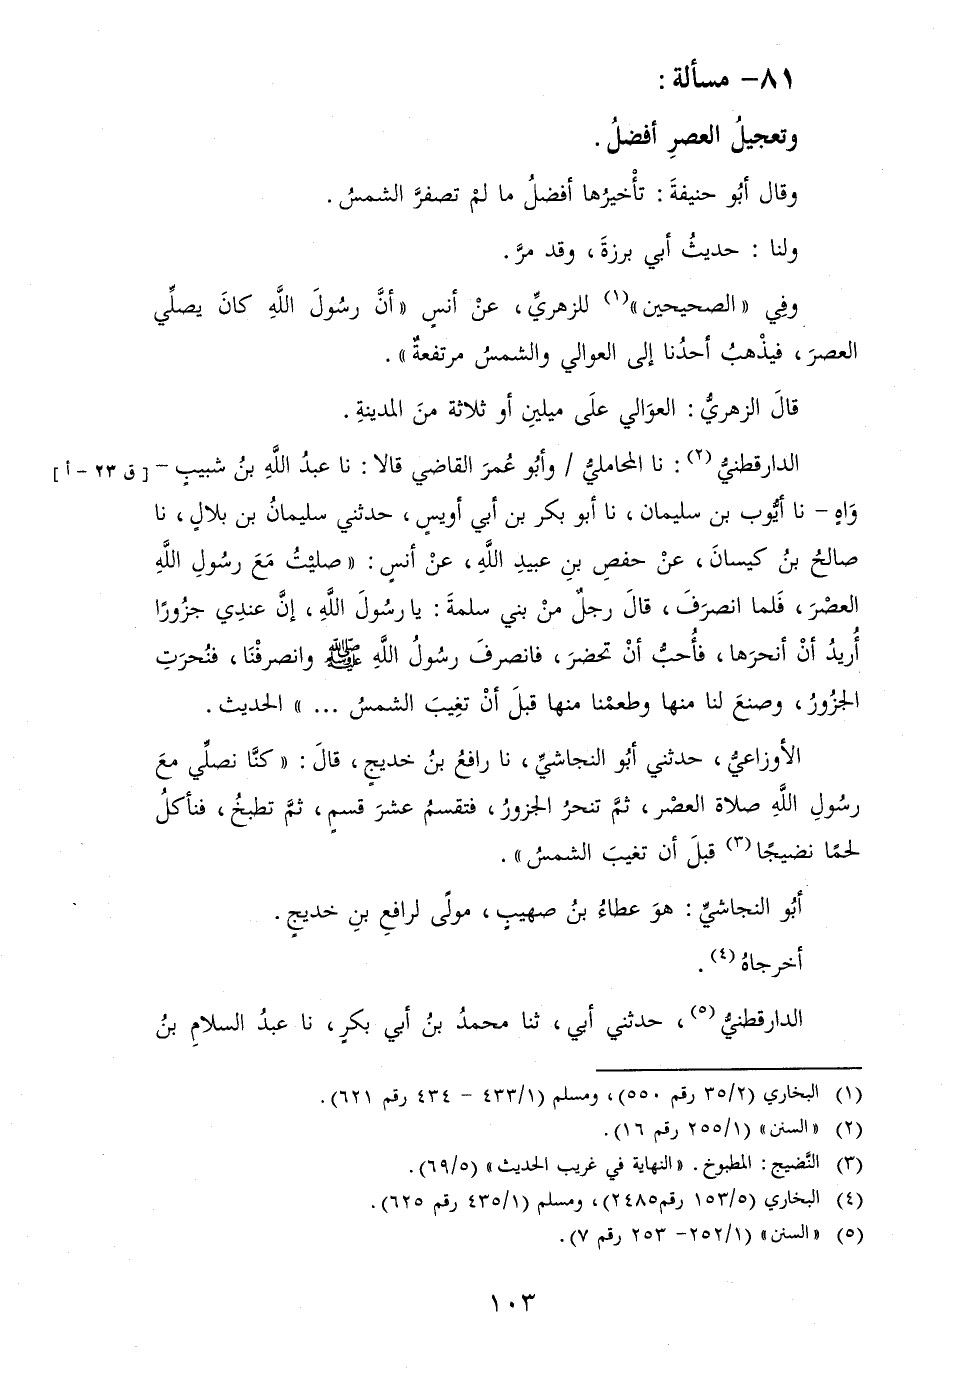 ٨١- مسألة :
وتعجيلُ العصرِ أفضلُ .
وقال أبُو حنيفةَ : تأْخيرُها أفضلُ ما لمْ تصفرَّ الشمسُ .
ولنا : حديثُ أبي برزةَ ، وقد مرَّ .
وفِي « الصحيحين »(١) للزهريِّ ، عنْ أنسٍ « أنَّ رسُولَ اللَّهِ كانَ يصلِّي
العصرَ ، فيذْهبُ أحدُنا إلى العوالي والشمسُ مرتفعةٌ » .
قالَ الزهريُّ : العوَالي علَى ميلينِ أو ثلاثة منَ المدينةِ .
الدارقطنيُّ(٢) : نا المحامليُّ / وأبُو عُمرَ القاضي قالا : نا عبدُ اللَّهِ بنُ شبيبٍ - [ ق ٢٣ - أ ]
وَاهٍ - نا أيُّوب بن سليمان ، نا أبو بكر بن أبي أويسٍ ، حدثني سليمانُ بن بلالٍ ، نا
صالحُ بنُ كيسانَ ، عنْ حفصِ بنِ عبيدِ اللَّهِ ، عنْ أنسٍ : « صليْتُ مَعَ رسُولِ اللَّهِ
العصْرَ ، فَلما انصرَفَ ، قالَ رجلٌ منْ بني سلمةَ : يا رسُولَ اللَّهِ ، إنَّ عندِي جزُورًا
أُريدُ أنْ أنحرَها ، فأُحبُّ أنْ تحضرَ ، فانصرفَ رسُولُ اللَّهِ ﷺ وانصرفْنَا ، فنُحرَتِ
الجزُورُ ، وصنعَ لنا منها وطعمْنا منها قبلَ أنْ تغِيبَ الشمسُ ... » الحديث .
الأوزاعيُّ ، حدثني أبُو النجاشيِّ ، نا رافعُ بنُ خديجٍ ، قالَ : « كنَّا نصلِّي معَ
رسُولِ اللَّهِ صلاة العصْر ، ثمَّ تنحرُ الجزورُ ، فتقسمُ عشرَ قسمٍ ، ثمَّ تطبخُ ، فنأكلُ
لحمًا نضيجًا(٣) قبلَ أن تغيبَ الشمسُ » .
أبُو النجاشيِّ : هوَ عطاءُ بنُ صهيبٍ ، مولًى لرافعِ بنِ خديجٍ .
أخرجاهُ(٤) .
الدارقطنيُّ(٥) ، حدثني أبي ، ثنا محمدُ بنُ أبي بكرٍ ، نا عبدُ السلامِ بنُ
(١) البخاري (٣٥/٢ رقم ٥٥٠) ، ومسلم (٤٣٣/١ - ٤٣٤ رقم ٦٢١) .
(٢) « السنن » (٢٥٥/١ رقم ١٦) .
(٣) النَّضيج : المطبوخ . « النهاية في غريب الحديث » (٦٩/٥) .
(٤) البخاري (١٥٣/٥ رقم٢٤٨٥) ، ومسلم (٤٣٥/١ رقم ٦٢٥) .
(٥) « السنن » (٢٥٢/١- ٢٥٣ رقم ٧) .
١٠٣